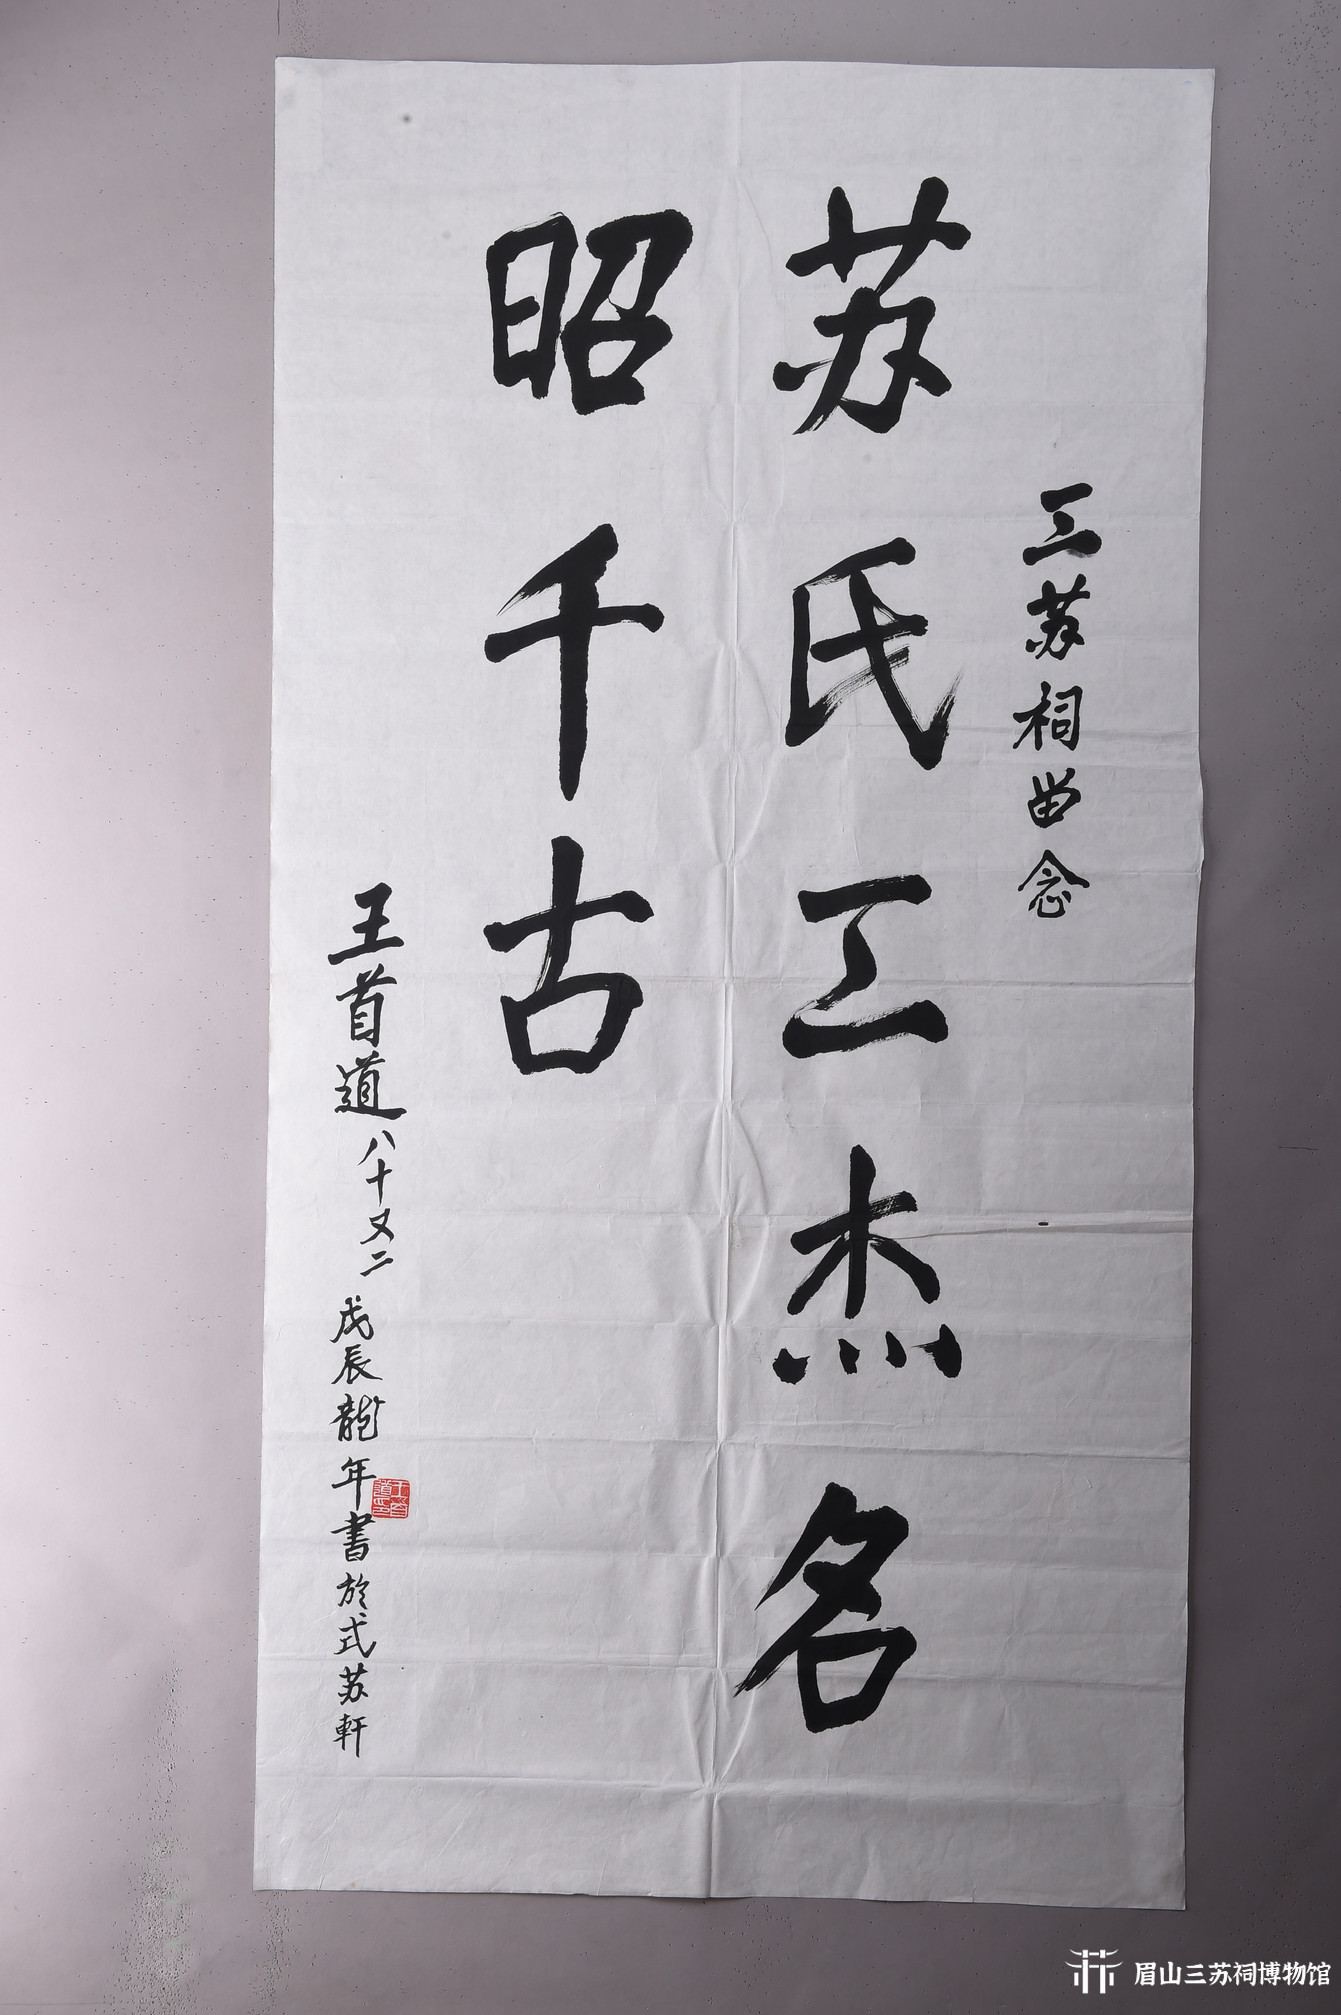 三苏祠留念
苏氏三杰名
昭千古
王首道八十又二
戊辰龍年書於式苏軒
王首道印
眉山三苏祠博物馆